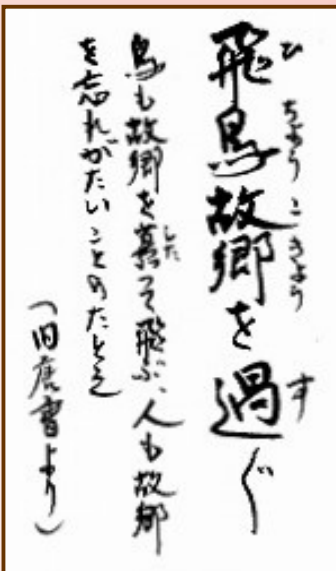 飛鳥故郷を過ぐ
ひちょうこきょうす
鳥も故郷を慕って飛ぶ、人も故郷
した
を忘れがたいことのたとえ
(旧唐書より)